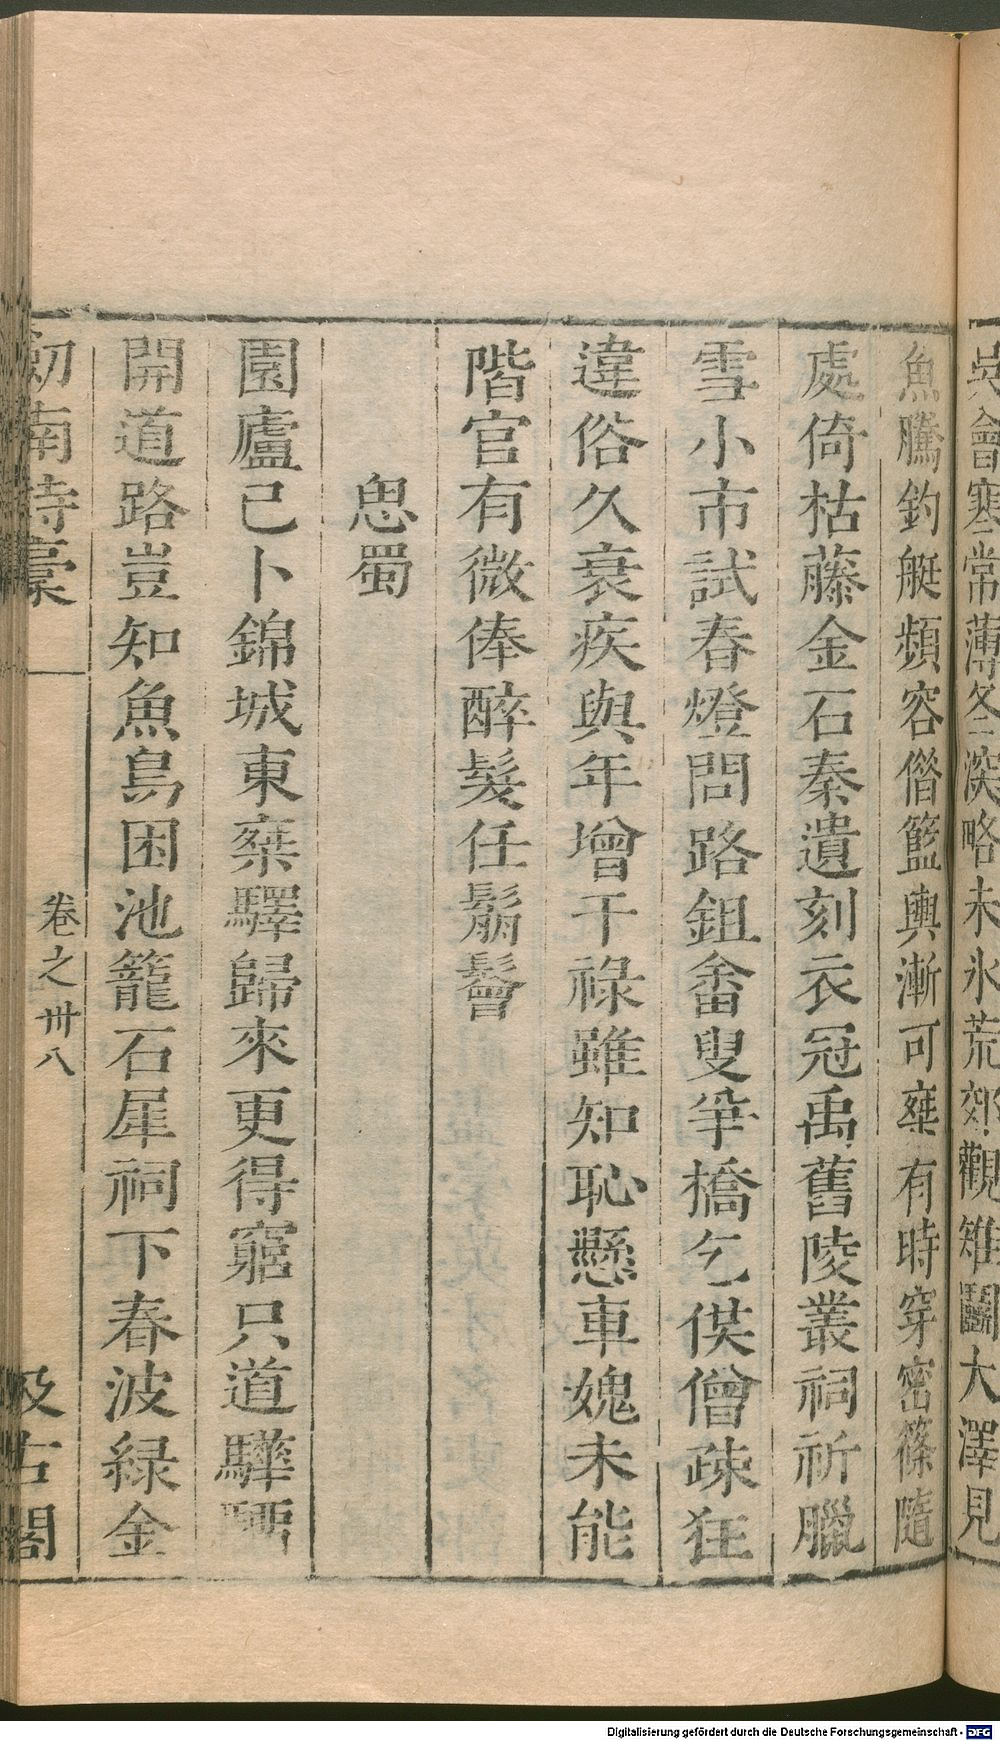 吳會寒常薄冬深略未氷荒郊觀雉鬬大澤見
魚騰釣艇頻容僭籃輿漸可椉有時穿密篠隨
處倚枯藤金石秦遺刻衣冠禹舊陵叢祠祈臘
雪小市試春燈問路鉏畬叟爭橋乞僕僧疎狂
違俗久衰疾與年增干祿雖知恥懸車媿未能
階官有微俸醉髮任鬅鬙
思蜀
園廬已卜錦城東椉驛歸來更得窮只道驊騮
開道路豈知魚鳥困池籠石犀祠下春波綠金
劒南詩稾
卷之卅八
汲古閣
Digitalisierung gefördert durch die Deutsche Forschungsgemeinschaft - DFG